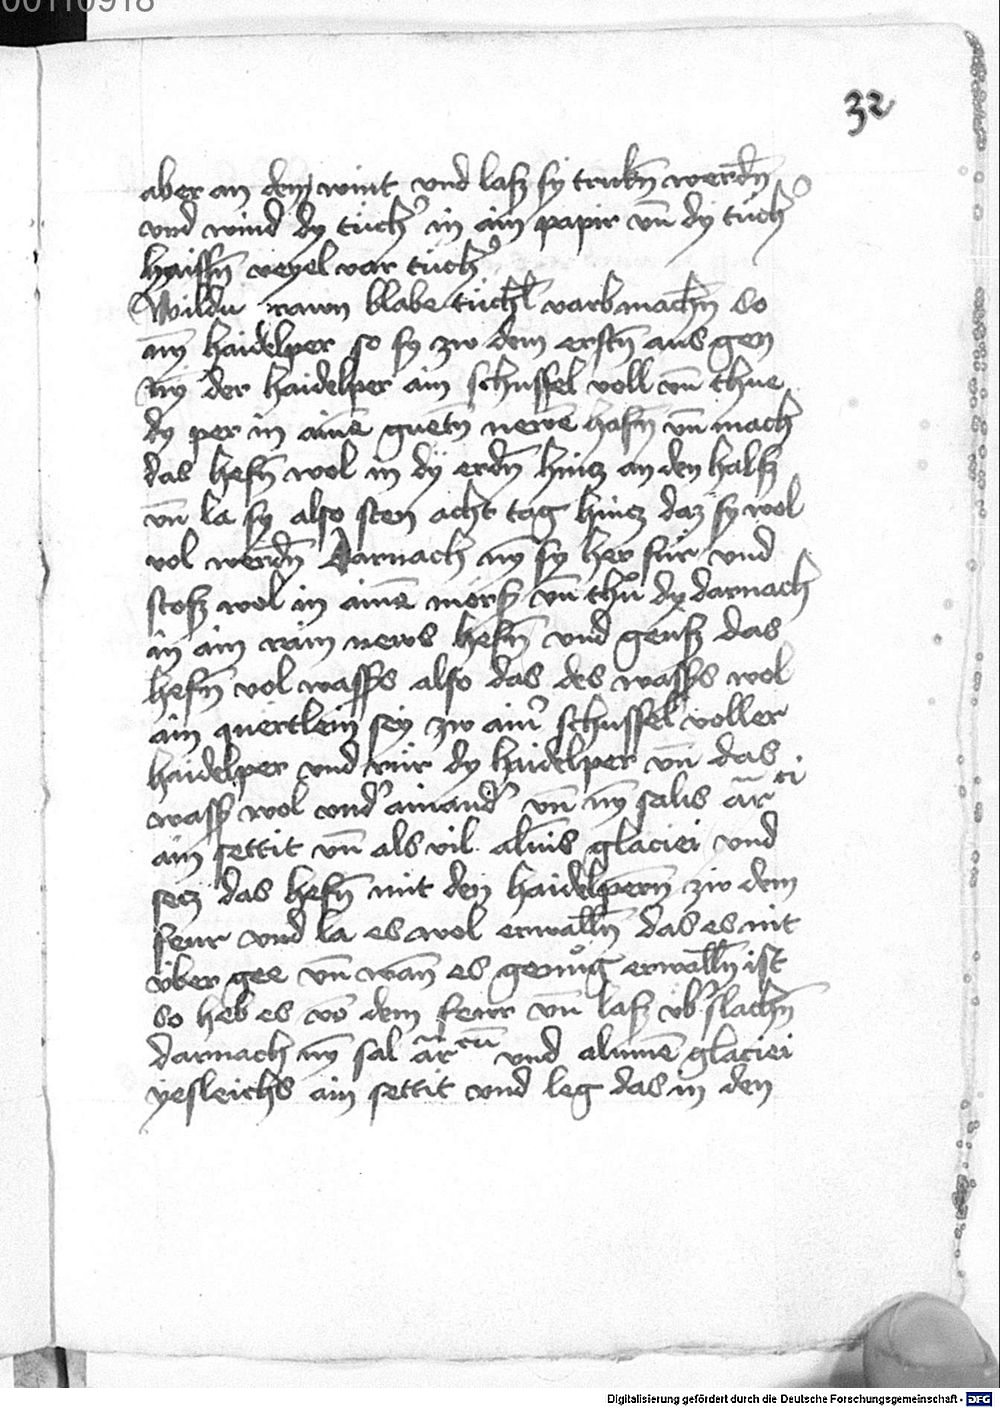 00110918
32
aber an dem wint vnd lasz sy trukn̄ werdn̄
vnd wind dy tüch' in ain papir vn̄ dy tüch'
haissn̄ veyel var tüch'
Wildu rawn blabe tüchl varb machn̄ so
nym haidelper so sy zw dem erstn̄ aus gen
nȳ der haidelper ain schussel voll vn̄ thue
dy per in aine guetn̄ newē hafn̄ vn̄ mach
das hefn̄ wol in dÿ erdn̄ hincz an den halsz
vn̄ la sy also sten acht tag hincz daz sy wol
vol werdn̄ Darnach nȳ sy her für vnd
stosz wol in aine mors' vn̄ thů dy darnach
in ain rain news hefn̄ vnd geusz das
hefn̄ vol wass's also das des wass's wol
ain quertlein sey zw ain' schussel voller
haidelper vnd rür dy haidelper vn̄ das
wass' wol vnd' ainand' vn̄ nȳ salis ar̄ti
ain settit vn̄ als vil alu̅is glaciei vnd
secz das hefn̄ mit den haidelpern̄ zw dem
feur vnd la es wol erwalln̄ das es nit
vber gee vn̄ wan̄ es genůg erwalln̄ ist
so heb es vō dem feur vn̄ lasz vb'slachn̄
darnach nȳ sal ar̄cu̅ vnd alumē glaciei
yesleichs ain settit vnd leg das in den
Digitalisierung gefördert durch die Deutsche Forschungsgemeinschaft - DFG